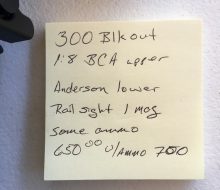 300 Blkout
1:8 BCA upper
Anderson lower
Rail sight 1 mag
some ammo
650⁰⁰ w/Ammo 700